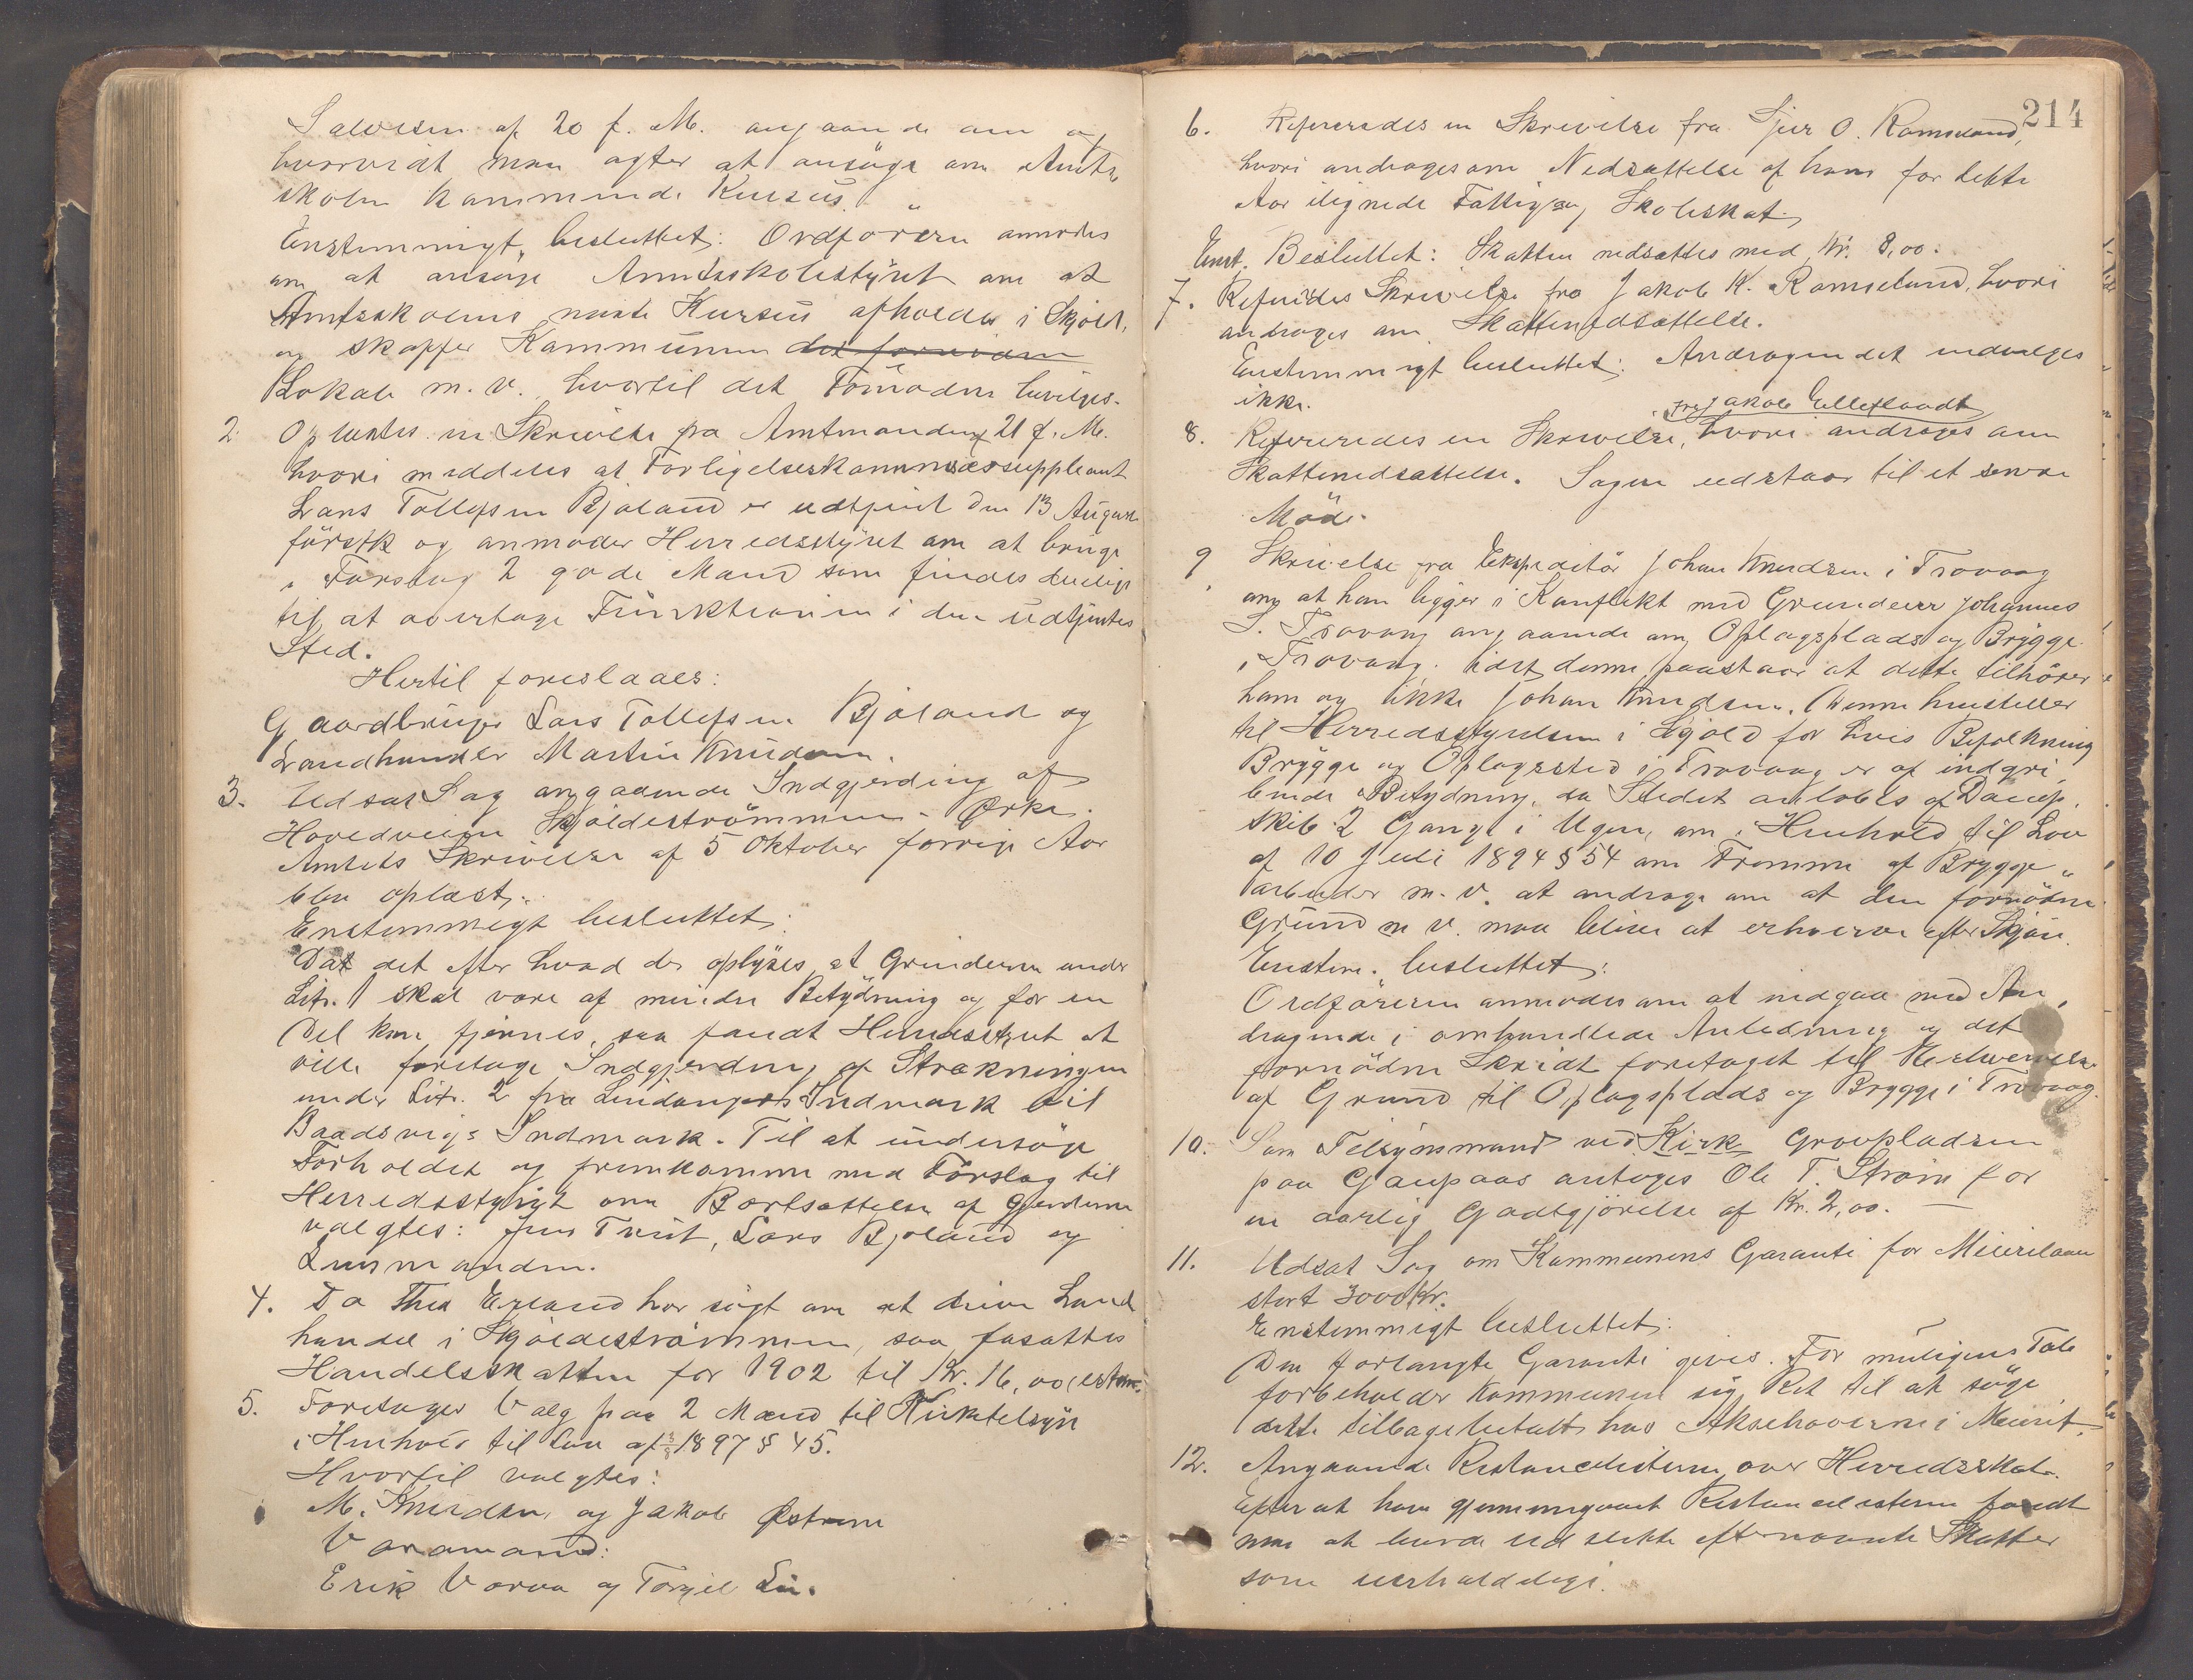 Salvesen af 20 f. M. angaaende om og
hvorvidt man agter at ansøge om Amts
skolen kommende Kursus.
Enstemmigt besluttet: Ordføreren anmodes
om at ansøge Amtsskolestyret om at
Amtsskolens næste Kursus afholdes i Skjold,
og skaffer Kommunen det fornødne
Lokale m. v. hvortil det Fornødne bevilges.
2. Oplæstes en Skrivelse fra Amtmanden 21 f. M.
hvori meddeles at Forligelseskommissærsuppleant
Lars Tollefsen Bjoland er udtjent den 13 August
førstk og anmoder Herredsstyret om at bringe
i Forslag 2 gode Mænd som findes duelige
til at overtage Funktionen i den udtjentes
Sted.
Hertil foreslaaes:
Gaardbruger Lars Tollefsen Bjoland og
Landhandler Martin Knudsen.
3. Udsat Sag angaaende Indgjerding af
Hovedveien Skjoldestrømmen - Ørke.
Amtets Skrivelse af 5 Oktober forrige Aar
blev oplæst.
Enstemmigt besluttet:
Da det efter hvad der oplyses at Grinderne under
Litr. 1 skal være af mindre Betydning og for en
Del kan fjernes, saa fandt Herredsstyret at
ville foretage Indgjerding af Strækningen
under Litr. 2 fra Indmark til
Baadsvigs Indmark. Til at undersøge
Forholdet og fremkomme med Forslag til
Herredsstyret om Bortsættelse af Gjerderne
valgtes: Jens Tveit, Lars Bjoland og
Lensmanden.
4. Da Thea Erland har søgt om at drive Land
handel i Skjoldestrømmen, saa fasattes
Handelsskatten for 1902 til Kr. 16,00
5. Foretages Valg paa 2 Mænd til Kirketilsyn
i Henhold til Lov af 3/8 1897 § 45.
Hvortil valgtes:
M. Knudsen og Jakob Østrem
Varamænd:
Erik Vorra og Torgil Li.
214
6. Refereredes en Skrivelse fra Sjur O. Ramsland,
hvori andrages om Nedsættelse af ham for dette
Aar ilignede Fattig og Skoleskat.
Enst. Besluttet: Skatten nedsættes med Kr. 8,00.
7. Referertes Skrivelse fra Jakob K. Ramsland, hvori
andrages om Skattenedsættelse.
Enstemmigt besluttet: Andragendet indvilges
ikke.
fra Jakob
8. Refereredes en Skrivelse, hvori andrages om
Skattenedsættelse. Sagen udstaar til et senere
Møde.
9 Skrivelse fra Ekspeditør Johan Knudsen i Trovaag
ang at han ligger i Konflikt med Grundeier Johannes
S. Trovaag angaaende om Oplagsplads og Brygge
i Trovaag. idet denne paastaar at dette tilhører
ham og ikke Johan Knudsen. Denne henstiller
til Herredsstyrelsen i Skjold for hvis Befolkning
Brygge og Oplagssted i Trovaag er af indgri,
bende Betydning, da Stedet anløbes af Damp,
skib 2 Gange i Ugen, om i Henhold til Lov
af 10 Juli 1894 § 54 om Fremme af Brygge
arbeider m. v. at andrage om at den fornødne
Grund m v. maa blive at erhverve efter Skjøn.
Enstem. besluttet:
Ordføreren anmodes om at indgaa med An,
dragende i omhandlede Anledning og det
fornødne Skridt foretaget til Erhvervelse
af Grund til Oplagsplads og Brygge i Trovaag.
10. Som Tilsynsmand ved Kirke Gravpladsen
paa Gaupaas antoges Ole T. Strøm for
en aarlig Godtgjørelse af Kr. 2,00.
11. Udsat Sag om Kommunens Garanti for Meierilaan
stort 3000 Kr.
Enstemmigt besluttet:
Den forlangte Garanti gives. For muligens Tab
forbeholder Kommunen sig Ret til at søge
dette tilbagebetalt hos Aksehaverne i Meeriet.
12. Angaaende Restancelisterne over Herredsskat.
Efter at have gjennemgaaet Restancelisterne fandt
man at burde udslette efternævnte Skatter
som uerholdelige.